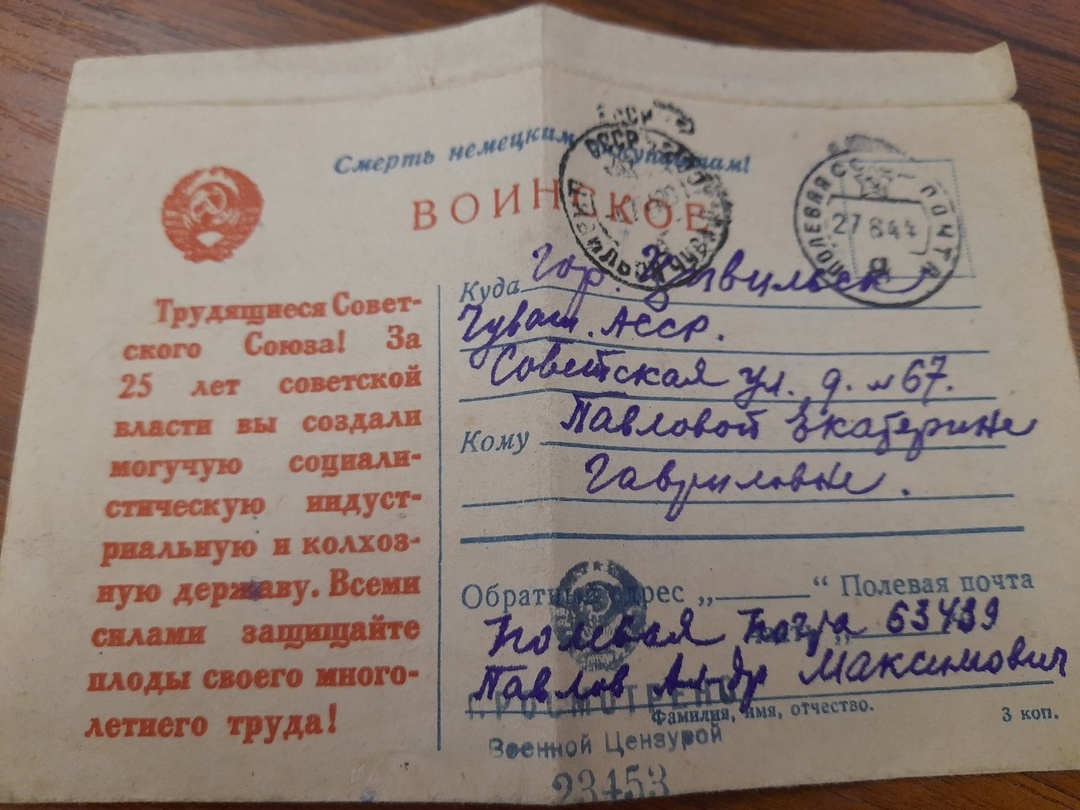 Смерть немецким оккупантам!
ВОИНСКОЕ
ПОЛЕВАЯ ПОЧТА
27 8 44
а
Трудящиеся Совет-
ского Союза! За
25 лет советской
власти вы создали
могучую социали-
стическую индуст-
риальную и колхоз-
ную державу. Всеми
силами защищайте
плоды своего много-
летнего труда!
Куда гор. Цивильск
Чуваш. АССР.
Советская ул. д. № 67.
Кому Павловой Екатерине
Гавриловне.
Обратный адрес „ “ Полевая почта
Полевая почта 63439
Павлов Ал-др Максимович
Фамилия, имя, отчество.
3 коп.
ПРОСМОТРЕНО
Военной Цензурой
23453